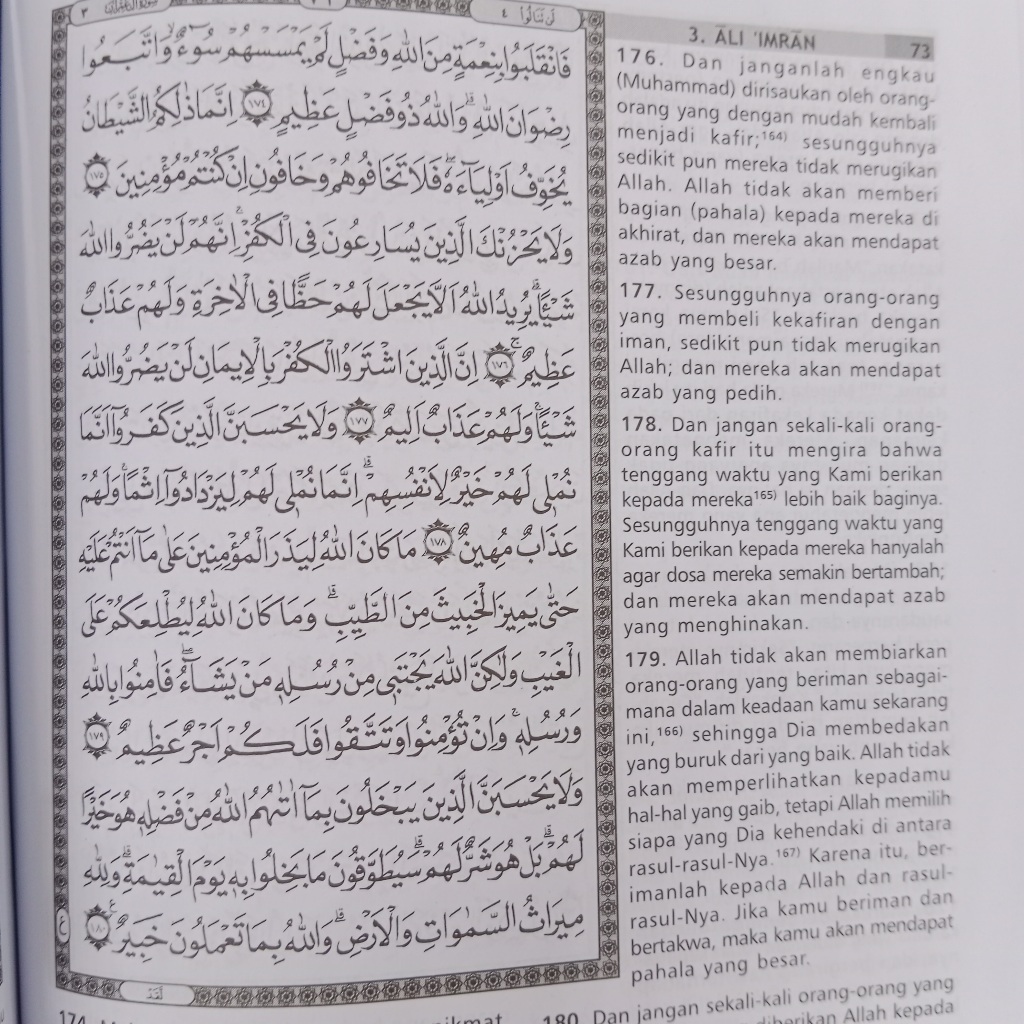 لَنْ تَنَالُوا ٤
فَانْقَلَبُوْا بِنِعْمَةٍ مِّنَ اللّٰهِ وَفَضْلٍ لَّمْ يَمْسَسْهُمْ سُوْۤءٌۙ وَّاتَّبَعُوْا
رِضْوَانَ اللّٰهِ ۗ وَاللّٰهُ ذُوْ فَضْلٍ عَظِيْمٍ ١٧٤ اِنَّمَا ذٰلِكُمُ الشَّيْطٰنُ
يُخَوِّفُ اَوْلِيَاۤءَهٗۖ فَلَا تَخَافُوْهُمْ وَخَافُوْنِ اِنْ كُنْتُمْ مُّؤْمِنِيْنَ ١٧٥
وَلَا يَحْزُنْكَ الَّذِيْنَ يُسَارِعُوْنَ فِى الْكُفْرِۚ اِنَّهُمْ لَنْ يَّضُرُّوا اللّٰهَ
شَيْـًٔا ۗ يُرِيْدُ اللّٰهُ اَلَّا يَجْعَلَ لَهُمْ حَظًّا فِى الْاٰخِرَةِ وَلَهُمْ عَذَابٌ
عَظِيْمٌۚ ١٧٦ اِنَّ الَّذِيْنَ اشْتَرَوُا الْكُفْرَ بِالْاِيْمَانِ لَنْ يَّضُرُّوا اللّٰهَ
شَيْـًٔاۚ وَلَهُمْ عَذَابٌ اَلِيْمٌ ١٧٧ وَلَا يَحْسَبَنَّ الَّذِيْنَ كَفَرُوْٓا اَنَّمَا
نُمْلِيْ لَهُمْ خَيْرٌ لِّاَنْفُسِهِمْ ۗ اِنَّمَا نُمْلِيْ لَهُمْ لِيَزْدَادُوْٓا اِثْمًاۚ وَلَهُمْ
عَذَابٌ مُّهِيْنٌ ١٧٨ مَا كَانَ اللّٰهُ لِيَذَرَ الْمُؤْمِنِيْنَ عَلٰى مَآ اَنْتُمْ عَلَيْهِ
حَتّٰى يَمِيْزَ الْخَبِيْثَ مِنَ الطَّيِّبِ ۗ وَمَا كَانَ اللّٰهُ لِيُطْلِعَكُمْ عَلَى
الْغَيْبِ وَلٰكِنَّ اللّٰهَ يَجْتَبِيْ مِنْ رُّسُلِهٖ مَنْ يَّشَاۤءُ ۖ فَاٰمِنُوْا بِاللّٰهِ
وَرُسُلِهٖ ۚ وَاِنْ تُؤْمِنُوْا وَتَتَّقُوْا فَلَكُمْ اَجْرٌ عَظِيْمٌ ١٧٩
وَلَا يَحْسَبَنَّ الَّذِيْنَ يَبْخَلُوْنَ بِمَآ اٰتٰىهُمُ اللّٰهُ مِنْ فَضْلِهٖ هُوَ خَيْرًا
لَّهُمْ ۗ بَلْ هُوَ شَرٌّ لَّهُمْ ۗ سَيُطَوَّقُوْنَ مَا بَخِلُوْا بِهٖ يَوْمَ الْقِيٰمَةِ ۗ وَلِلّٰهِ
مِيْرَاثُ السَّمٰوٰتِ وَالْاَرْضِۗ وَاللّٰهُ بِمَا تَعْمَلُوْنَ خَبِيْرٌ ١٨٠
ع
لَقَدْ
3. ĀLI 'IMRĀN 73
176. Dan janganlah engkau
(Muhammad) dirisaukan oleh orang-
orang yang dengan mudah kembali
menjadi kafir;164) sesungguhnya
sedikit pun mereka tidak merugikan
Allah. Allah tidak akan memberi
bagian (pahala) kepada mereka di
akhirat, dan mereka akan mendapat
azab yang besar.
177. Sesungguhnya orang-orang
yang membeli kekafiran dengan
iman, sedikit pun tidak merugikan
Allah; dan mereka akan mendapat
azab yang pedih.
178. Dan jangan sekali-kali orang-
orang kafir itu mengira bahwa
tenggang waktu yang Kami berikan
kepada mereka165) lebih baik baginya.
Sesungguhnya tenggang waktu yang
Kami berikan kepada mereka hanyalah
agar dosa mereka semakin bertambah;
dan mereka akan mendapat azab
yang menghinakan.
179. Allah tidak akan membiarkan
orang-orang yang beriman sebagai-
mana dalam keadaan kamu sekarang
ini,166) sehingga Dia membedakan
yang buruk dari yang baik. Allah tidak
akan memperlihatkan kepadamu
hal-hal yang gaib, tetapi Allah memilih
siapa yang Dia kehendaki di antara
rasul-rasul-Nya.167) Karena itu, ber-
imanlah kepada Allah dan rasul-
rasul-Nya. Jika kamu beriman dan
bertakwa, maka kamu akan mendapat
pahala yang besar.
180. Dan jangan sekali-kali orang-orang yang
diberikan Allah kepada